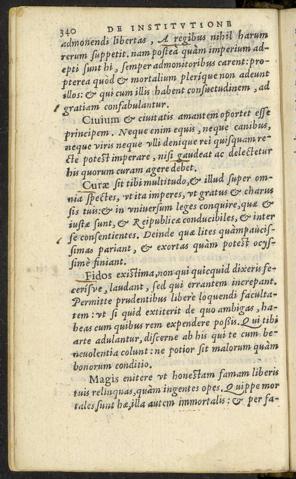 340 DE INSTITVTIONE
admonendi libertas, A regibus nihil harum
rerum suppetit. nam posteà quàm imperium ad-
epti sunt hi, semper admonitoribus carent: pro-
pterea quòd & mortalium plerique non adeunt
illos: & qui cum illis habent consuetudinem, ad
gratiam confabulantur.
Ciuium & ciuitatis amantem oportet esse
principem. Neque enim equis, neque canibus,
neque viris neque vlli denique rei quisquam re-
ctè potest imperare, nisi gaudeat ac delectetur
his quorum curam agere debet.
Curæ sit tibi multitudo, & illud super om-
nia spectes, vt ita imperes, vt gratus & charus
sis tuis: & in vniuersum leges conquire, quæ &
iustæ sunt, & Reipublicæ conducibiles, & inter
se consentientes. Deinde quæ lites quàmpaucis-
simas pariant, & exortas quàm potest ocys-
simè finiant.
Fidos existima, non qui quicquid dixeris fe-
cerisve, laudant, sed qui errantem increpant.
Permitte prudentibus liberè loquendi faculta-
tem: vt si quid extiterit de quo ambigas, ha-
beas cum quibus rem expendere possis. Qui tibi
arte adulantur, discerne ab his qui te cum be-
neuolentia colunt: ne potior sit malorum quàm
bonorum conditio.
Magis enitere vt honestam famam liberis
tuis relinquas, quàm ingentes opes. Quippe mor
tales sunt hæ, illa autem immortalis: & per fa-